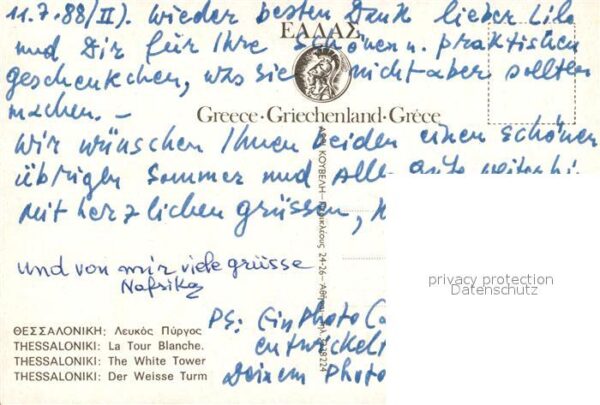 11.7.88/II). Wieder besten Dank lieber Lilo
und Dir für Ihre schönen u. praktischen
ΕΛΛΑΣ
geschenkchen, was Sie nicht aber sollten
machen. –
Greece · Griechenland · Grèce
Wir wünschen Ihnen beiden einen schönen
übrigen Sommer und alles gute weiterhi
mit herzlichen grüssen,
und von mir viele grüsse
Nafsika
privacy protection
Datenschutz
ΘΕΣΣΑΛΟΝΙΚΗ: Λευκός Πύργος
THESSALONIKI: La Tour Blanche.
THESSALONIKI: The White Tower
THESSALONIKI: Der Weisse Turm
PS: Ein Photo
entwickel
Deinem Photo
ΚΟΥΒΕΛΗ – 24-26 –